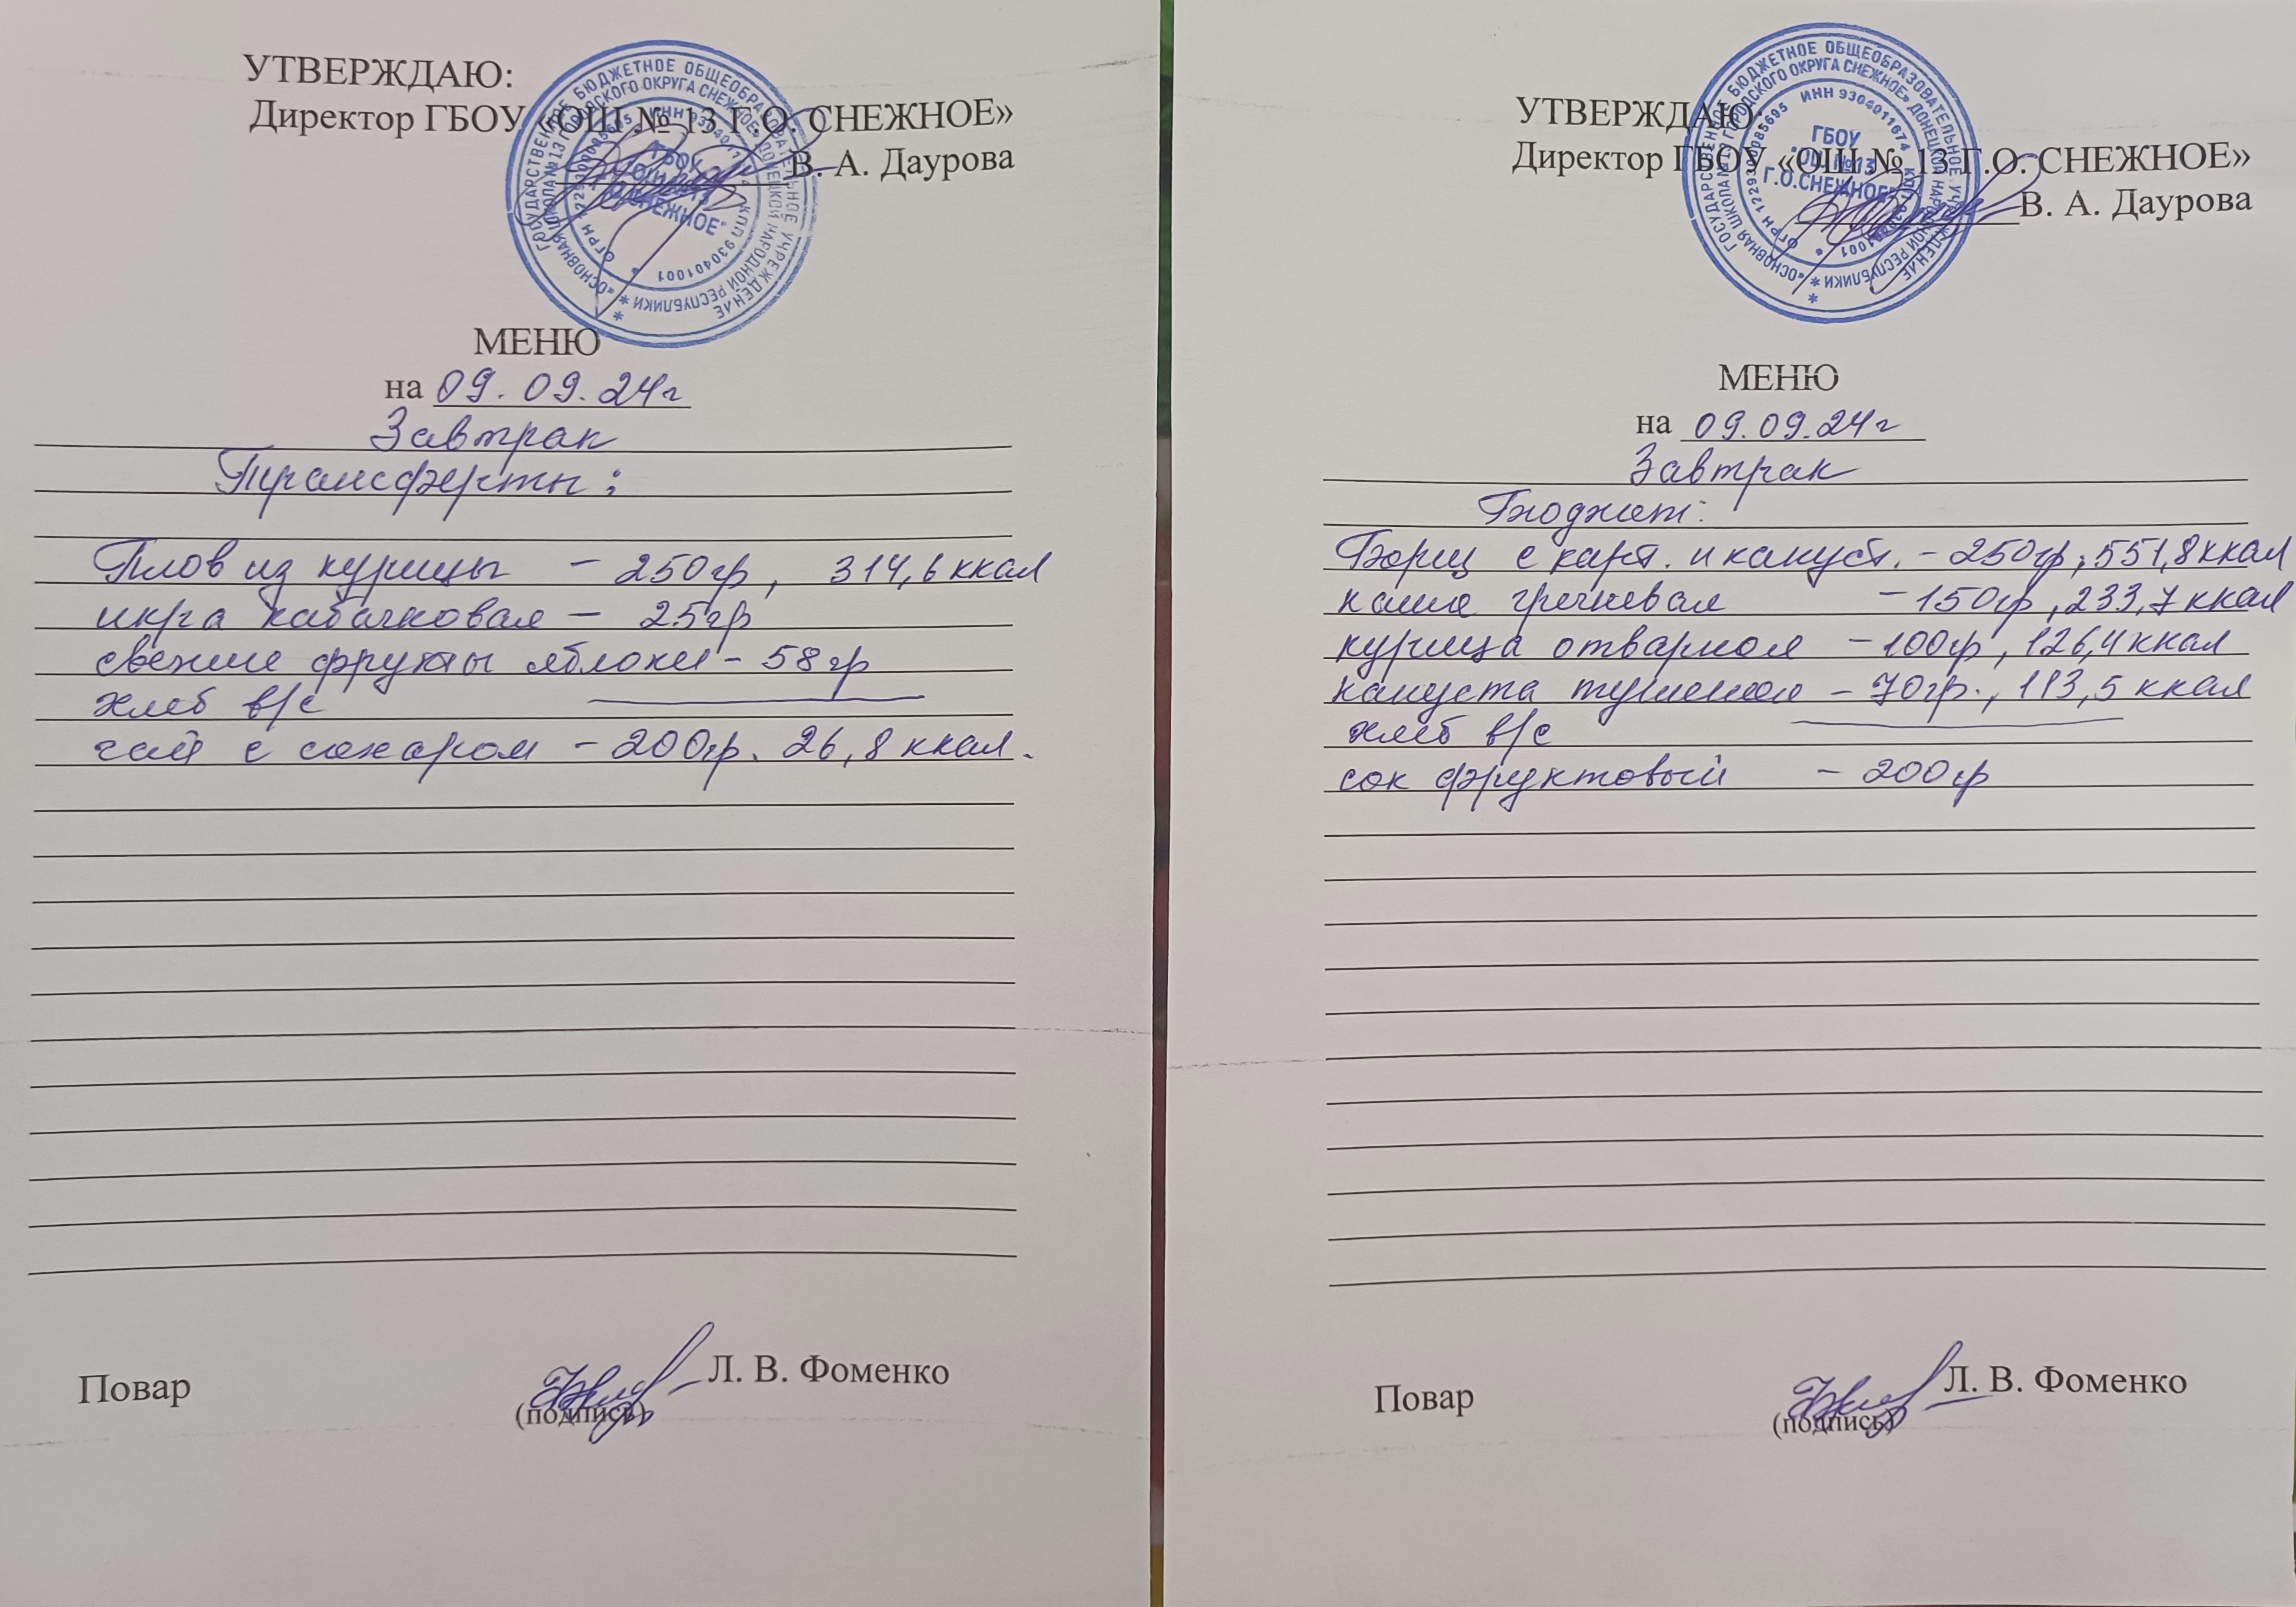 УТВЕРЖДАЮ:
Директор ГБОУ «ОШ № 13 Г.О. СНЕЖНОЕ»
В. А. Даурова
ГОСУДАРСТВЕННОЕ БЮДЖЕТНОЕ ОБЩЕОБРАЗОВАТЕЛЬНОЕ УЧРЕЖДЕНИЕ
«ОСНОВНАЯ ШКОЛА № 13 ГОРОДСКОГО ОКРУГА СНЕЖНОЕ» ДОНЕЦКОЙ НАРОДНОЙ РЕСПУБЛИКИ
КПП 930401001
МЕНЮ
на 09.09.24г
Завтрак
Трансферты:
Плов из курицы – 250гр, 314,6 ккал
икра кабачковая – 25гр
свежие фрукты яблоки – 58гр
хлеб в/с
чай с сахаром – 200гр. 26,8 ккал.
Повар
Л. В. Фоменко
(подпись)
УТВЕРЖДАЮ:
Директор ГБОУ «ОШ № 13 Г.О. СНЕЖНОЕ»
В. А. Даурова
ГОСУДАРСТВЕННОЕ БЮДЖЕТНОЕ ОБЩЕОБРАЗОВАТЕЛЬНОЕ УЧРЕЖДЕНИЕ
«ОСНОВНАЯ ШКОЛА № 13 ГОРОДСКОГО ОКРУГА СНЕЖНОЕ» ДОНЕЦКОЙ НАРОДНОЙ РЕСПУБЛИКИ
ОГРН 1229300085695 ИНН 9304011674
ГБОУ
"ОШ №13
Г.О.СНЕЖНОЕ"
МЕНЮ
на 09.09.24г
Завтрак
Бюджет:
Борщ с карт. и капуст. – 250гр, 551,8 ккал
каша гречневая – 150гр, 233,7 ккал
курица отварная – 100гр, 126,4 ккал
капуста тушеная – 70гр., 113,5 ккал
хлеб в/с
сок фруктовый – 200гр
Повар
Л. В. Фоменко
(подпись)